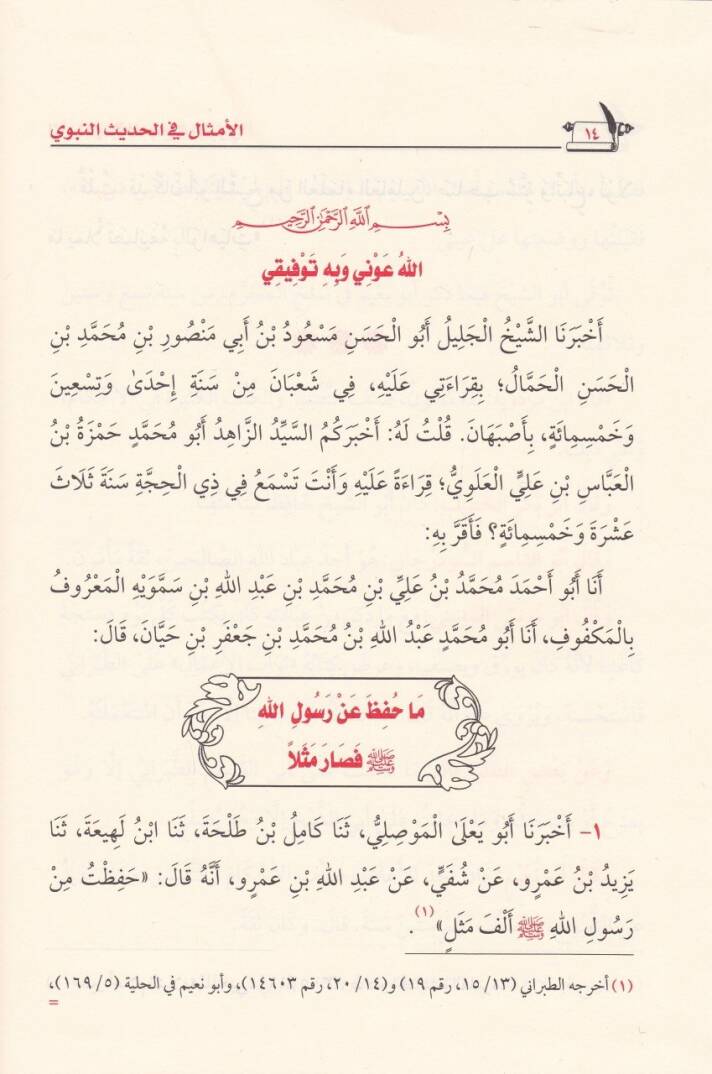 ١٤
الأمثال في الحديث النبوي
بِسْمِ اللَّهِ الرَّحْمَٰنِ الرَّحِيمِ
اللهُ عَوْنِي وَبِهِ تَوْفِيقِي
أَخْبَرَنَا الشَّيْخُ الْجَلِيلُ أَبُو الْحَسَنِ مَسْعُودُ بْنُ أَبِي مَنْصُورِ بْنِ مُحَمَّدِ بْنِ
الْحَسَنِ الْحَمَّالُ؛ بِقِرَاءَتِي عَلَيْهِ، فِي شَعْبَانَ مِنْ سَنَةِ إِحْدَىٰ وَتِسْعِينَ
وَخَمْسِمِائَةٍ، بِأَصْبَهَانَ. قُلْتُ لَهُ: أَخْبَرَكُمُ السَّيِّدُ الزَّاهِدُ أَبُو مُحَمَّدٍ حَمْزَةُ بْنُ
الْعَبَّاسِ بْنِ عَلِيٍّ الْعَلَوِيُّ؛ قِرَاءَةً عَلَيْهِ وَأَنْتَ تَسْمَعُ فِي ذِي الْحِجَّةِ سَنَةَ ثَلَاثَ
عَشْرَةَ وَخَمْسِمِائَةٍ؟ فَأَقَرَّ بِهِ:
أَنَا أَبُو أَحْمَدَ مُحَمَّدُ بْنُ عَلِيِّ بْنِ مُحَمَّدِ بْنِ عَبْدِ اللهِ بْنِ سَمَّوَيْهِ الْمَعْرُوفُ
بِالْمَكْفُوفِ، أَنَا أَبُو مُحَمَّدٍ عَبْدُ اللهِ بْنُ مُحَمَّدِ بْنِ جَعْفَرِ بْنِ حَيَّانَ، قَالَ:
مَا حُفِظَ عَنْ رَسُولِ اللهِ
ﷺ فَصَارَ مَثَلاً
١- أَخْبَرَنَا أَبُو يَعْلَىٰ الْمَوْصِلِيُّ، ثَنَا كَامِلُ بْنُ طَلْحَةَ، ثَنَا ابْنُ لَهِيعَةَ، ثَنَا
يَزِيدُ بْنُ عَمْرٍو، عَنْ شُفَيٍّ، عَنْ عَبْدِ اللهِ بْنِ عَمْرٍو، أَنَّهُ قَالَ: «حَفِظْتُ مِنْ
رَسُولِ اللهِ ﷺ أَلْفَ مَثَلٍ»(١).
(١) أخرجه الطبراني (١٥/١٣، رقم ١٩) و(٢٠/١٤، رقم ١٤٦٠٣)، وأبو نعيم في الحلية (١٦٩/٥)،
=